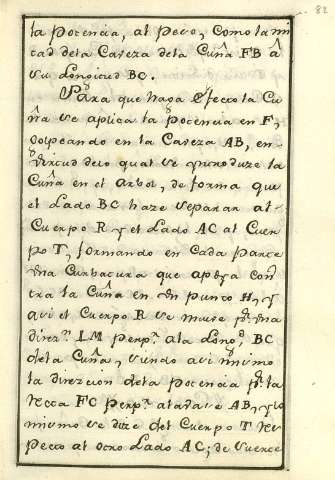 82
la Potencia, al Peso, como la mi
tad dela Caveza dela Cuña FB â
su Longitud BC.
Para que haga efecto la Cu
ña se aplica la Potencia en F,
golpeando en la Caveza AB, en
virtud delo qual se yntroduze la
Cuña en el arbol, de forma que
el Lado BC haze separar al
Cuerpo R y el Lado AC al Cuer
po T, formando en cada parte
vna Curbatura que apoya con
tra la Cuña en vn punto H, y
asi el Cuerpo R se mueve pr. vna
direzn. LM perpr. ala Longd. BC
dela Cuña, siendo asi mismo
la direzcion dela potencia pr. la
recta FC perpr. ala vase AB, y lo
mismo se dize del Cuerpo T res
pecto al otro Lado AC; de suerte